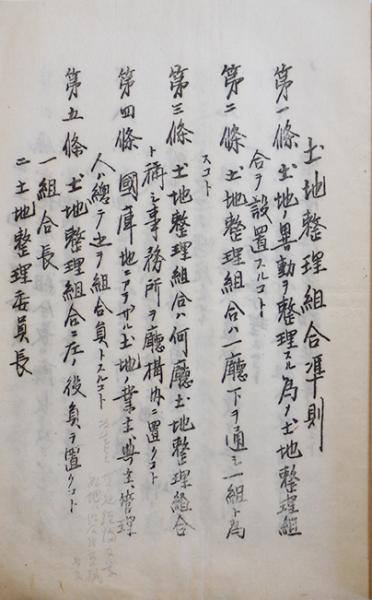 土地整理組合準則
第一條 土地ノ異動ヲ整理スル為ノ土地整理組
合ヲ設置スルコト
第二條 土地整理組合ハ一廳下ヲ通シ一組ト為
スコト
第三條 土地整理組合ハ何廳土地整理組合
ト稱シ事務所ヲ廳構内ニ置クコト
第四條 國庫地ニアラサル土地ノ業主、典主、管理
人ハ總テ之ヲ組合員トスルコト
第五條 土地整理組合ニ左ノ役員ヲ置クコト
一組合長
二土地整理委員長